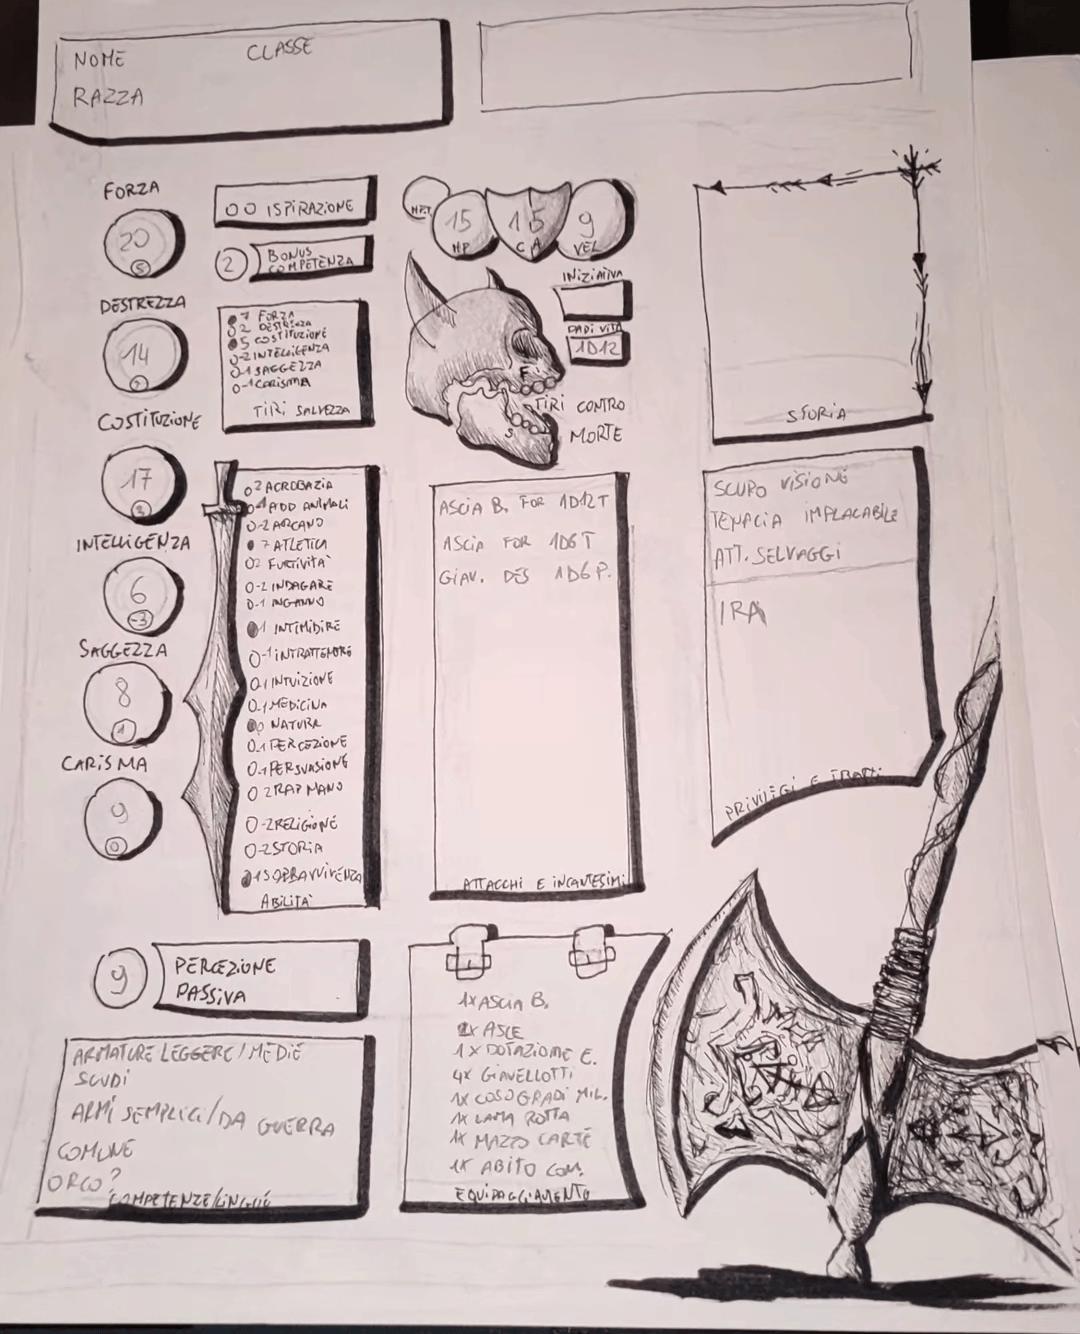 NOME CLASSE
RAZZA
FORZA
20
5
DESTREZZA
14
2
COSTITUZIONE
17
3
INTELLIGENZA
6
-3
SAGGEZZA
8
1
CARISMA
9
0
ISPIRAZIONE
2 BONUS
COMPETENZA
7 FORZA
2 DESTREZZA
5 COSTITUZIONE
-2 INTELLIGENZA
-1 SAGGEZZA
-1 CARISMA
TIRI SALVEZZA
2 ACROBAZIA
-1 ADD ANIMALI
-2 ARCANO
7 ATLETICA
2 FURTIVITÀ
-2 INDAGARE
-1 INGANNO
1 INTIMIDIRE
-1 INTRATTENERE
-1 INTUIZIONE
-1 MEDICINA
0 NATURA
-1 PERCEZIONE
-1 PERSUASIONE
2 RAP MANO
-2 RELIGIONE
-2 STORIA
1 SOPRAVVIVENZA
ABILITÀ
9 PERCEZIONE
PASSIVA
ARMATURE LEGGERE/MEDIE
SCUDI
ARMI SEMPLICI/DA GUERRA
COMUNE
ORCO?
COMPETENZE/LINGUE
HP.T
15 HP
15 CA
9 VEL
INIZIATIVA
DADI VITA
1D12
F
S
TIRI CONTRO
MORTE
ASCIA B. FOR 1D12T
ASCIA FOR 1D6T
GIAV. DES 1D6 P.
ATTACCHI E INCANTESIMI
1X ASCIA B.
2X ASCE
1X DOTAZIONE E.
4X GIAVELLOTTI
1X COSO GRADI MIL.
1X LAMA ROTTA
1X MAZZO CARTE
1X ABITO COM.
EQUIPAGGIAMENTO
STORIA
SCURO VISIONE
TENACIA IMPLACABILE
ATT. SELVAGGI
IRA
PRIVILEGI E TRATTI